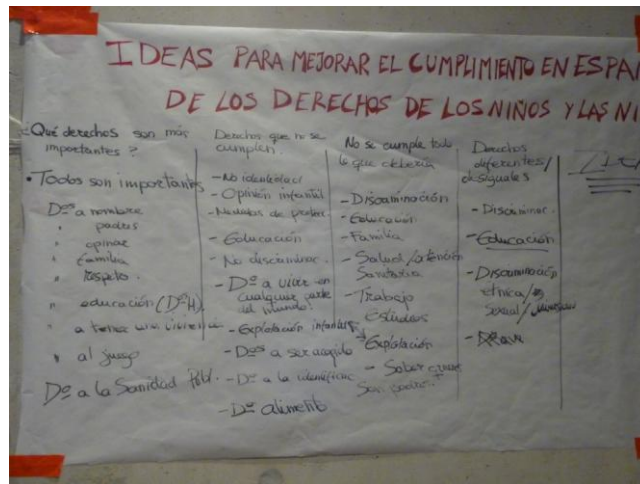 IDEAS PARA MEJORAR EL CUMPLIMIENTO EN ESPA
DE LOS DERECHOS DE LOS NIÑOS Y LAS NI
Qué derechos son más
importantes?
• Todos son importantes
Dºs a nombre
" padres
" opinar
" familia
" respeto.
" educación (DºH)
" a tener una vivienda
" al juego
Dº a la Sanidad Públ.
Derechos que no se
cumplen.
- No identidad
- Opinión infantil
- Malos de padre
- Educación
- No discriminac.
- Dº a vivir en
cualquier parte
del mundo.
- Explotación infantil
- Dºs a ser acogido
- Dº a la identific
- Dº alimento
No se cumple todo
lo que debería
- Discriminación
- Educación
- Familia
- Salud/atención
Sanitaria
- Trabajo
estudios
Explotación
- Saber
son padres.
Derechos
diferentes/
desiguales
- Discriminac.
- Educación
- Discriminación
étnica/
sexual/